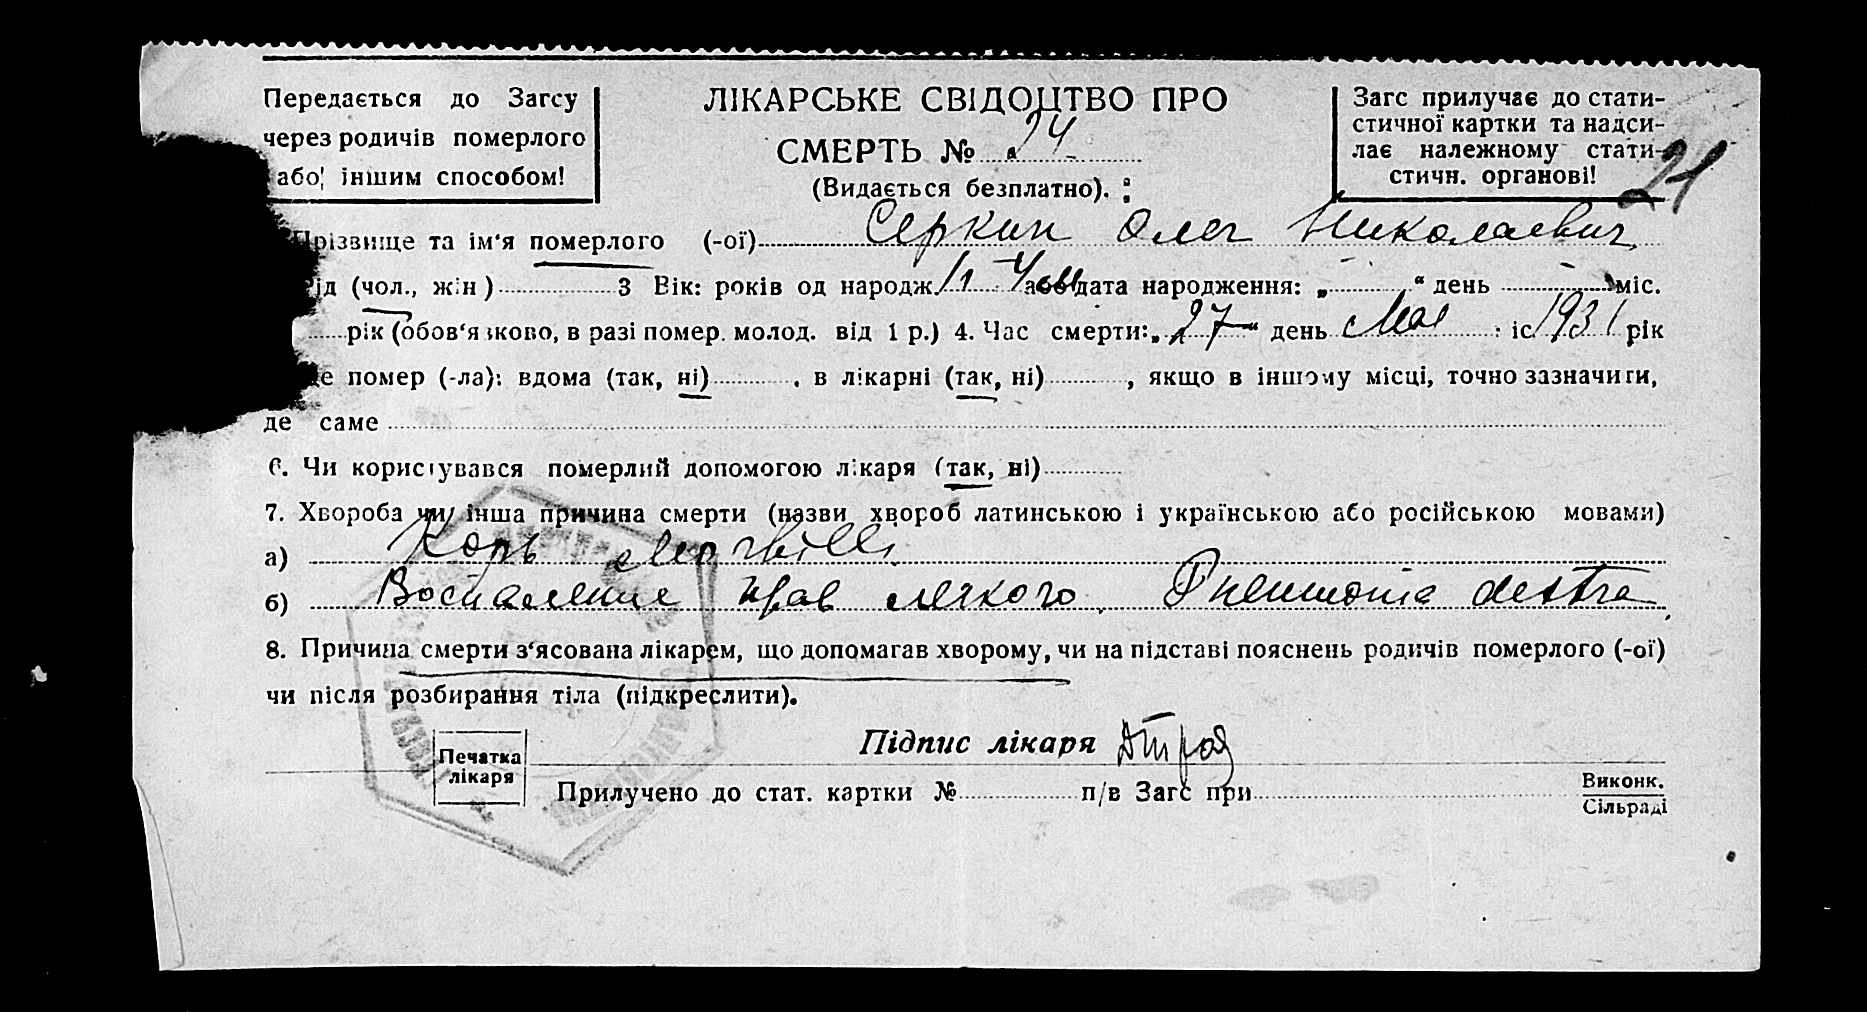 Передається до Загсу
через родичів померлого
або іншим способом!
ЛІКАРСЬКЕ СВІДОЦТВО ПРО
СМЕРТЬ № 24
(Видається безплатно).
Загс прилучає до стати-
стичної картки та надси-
лає належному стати-
стичн. органові!
21
Прізвище та ім'я померлого (-ої) Серкин Олег Николаевич
(чол., жін) 3 Вік: років од народж. дата народження: „ “ день міс.
рік (обов'язково, в разі помер. молод. від 1 р.) 4. Час смерти: „27“ день Мая іс 1931 рік
помер (-ла): вдома (так, ні) , в лікарні (так, ні) , якщо в іншому місці, точно зазначити,
де саме
6. Чи користувався померлий допомогою лікаря (так, ні)
7. Хвороба чи інша причина смерти (назви хвороб латинською і українською або російською мовами)
а) Корь Morbilli
б) Воспаление прав легкого. Pneumonia dextra
8. Причина смерти з'ясована лікарем, що допомагав хворому, чи на підставі пояснень родичів померлого (-ої)
чи після розбирання тіла (підкреслити).
Підпис лікаря
Печатка
лікаря
Прилучено до стат. картки № п/в Загс при
Виконк.
Сільраді